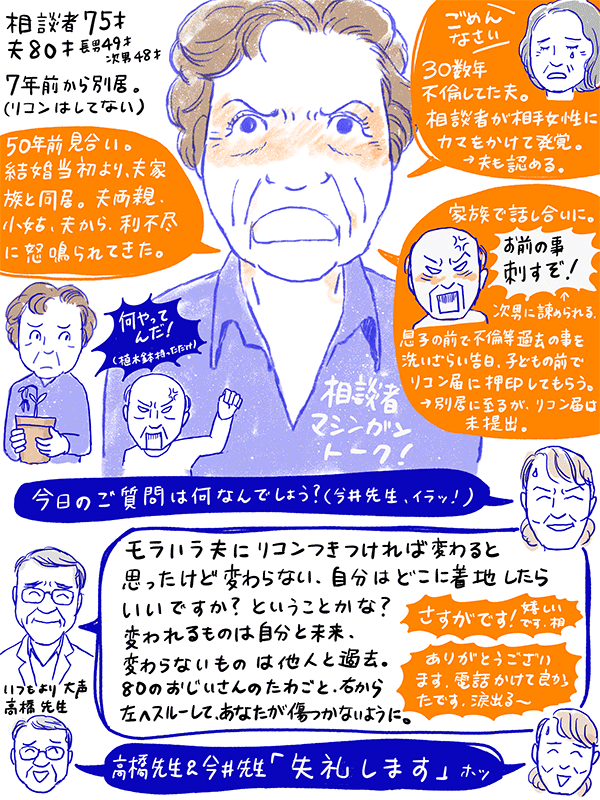 相談者75才
夫80才 長男49才
次男48才
7年前から別居。
(リコンはしてない)
50年前見合い。
結婚当初より、夫家
族と同居。夫両親、
小姑、夫から、利不尽
に怒鳴られてきた。
ごめん
なさい
30数年
不倫してた夫。
相談者が相手女性に
カマをかけて発覚。
→夫も認める。
家族で話し合いに。
お前の事
刺すぞ!
↑
次男に諌められる。
息子の前で不倫等過去の事を
洗いざらい告白、子どもの前で
リコン届に押印してもらう。
→別居に至るが、リコン届は
未提出。
何やって
んだ!
(植木鉢持っただけ)
相談者
マシンガン
トーク!
今日のご質問は何なんでしょう?(今井先生、イラッ!)
モラハラ夫にリコンつきつければ変わると
思ったけど変わらない、自分はどこに着地したら
いいですか?ということかな?
変われるものは自分と未来、
変わらないものは他人と過去。
80のおじいさんのたわごと、右から
左へスルーして、あなたが傷つかないように。
さすがです!嬉しい
です。相
ありがとうござい
ます、電話かけて良か
ったです、涙出る〜
いつもより大声
高橋先生
高橋先生&今井先生「失礼します」ホッ